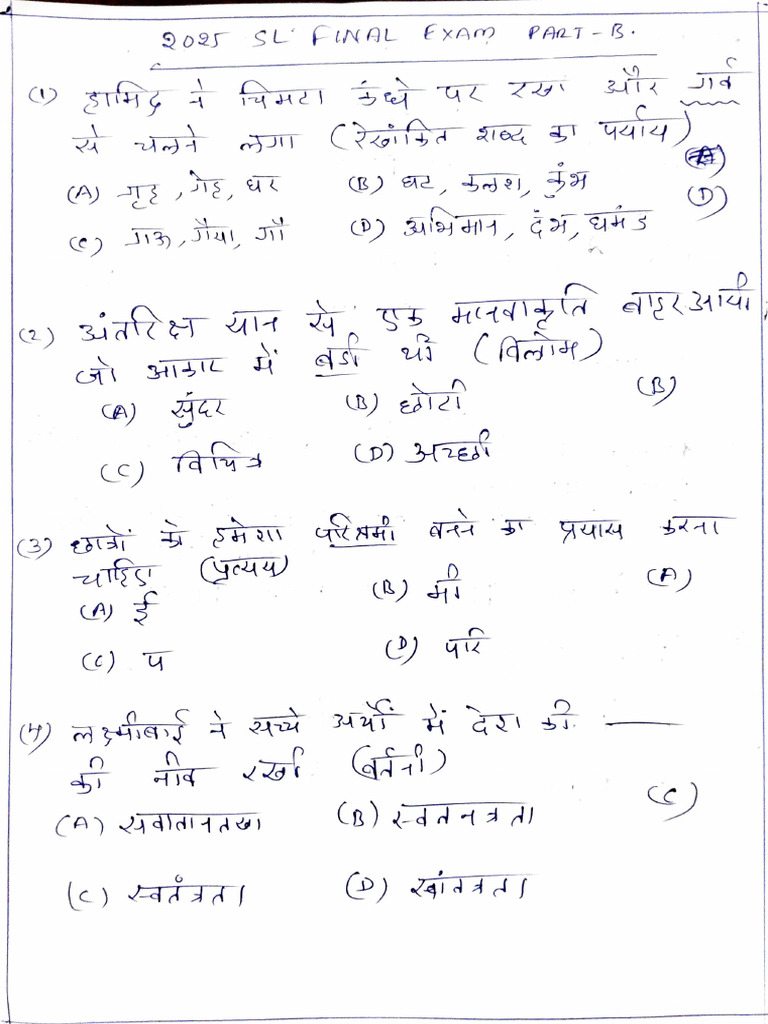 2025 SL FINAL EXAM PART-B.
(1) हामिद ने चिमटा कंधे पर रखा और गर्व
से चलने लगा (रेखांकित शब्द का पर्याय)
(A) गृह, गेह, घर (B) घट, कलश, कुंभ (D)
(C) गऊ, गैया, गौ (D) अभिमान, दंभ, घमंड
(2) अंतरिक्ष यान से एक मानवाकृति बाहर आयी,
जो आकार में बडी थी (विलोम)
(A) सुंदर (B) छोटी (B)
(C) विचित्र (D) अच्छी
(3) छात्रों को हमेशा परिश्रमी बनने का प्रयास करना
चाहिए (प्रत्यय)
(A) ई (B) मी (A)
(C) प (D) परि
(4) लक्ष्मीबाई ने सच्चे अर्थों में देश की ———
की नीव रखी (वर्तनी)
(A) सवातानतखा (B) स्वतनत्रता (C)
(C) स्वतंत्रता (D) स्वांतत्रता